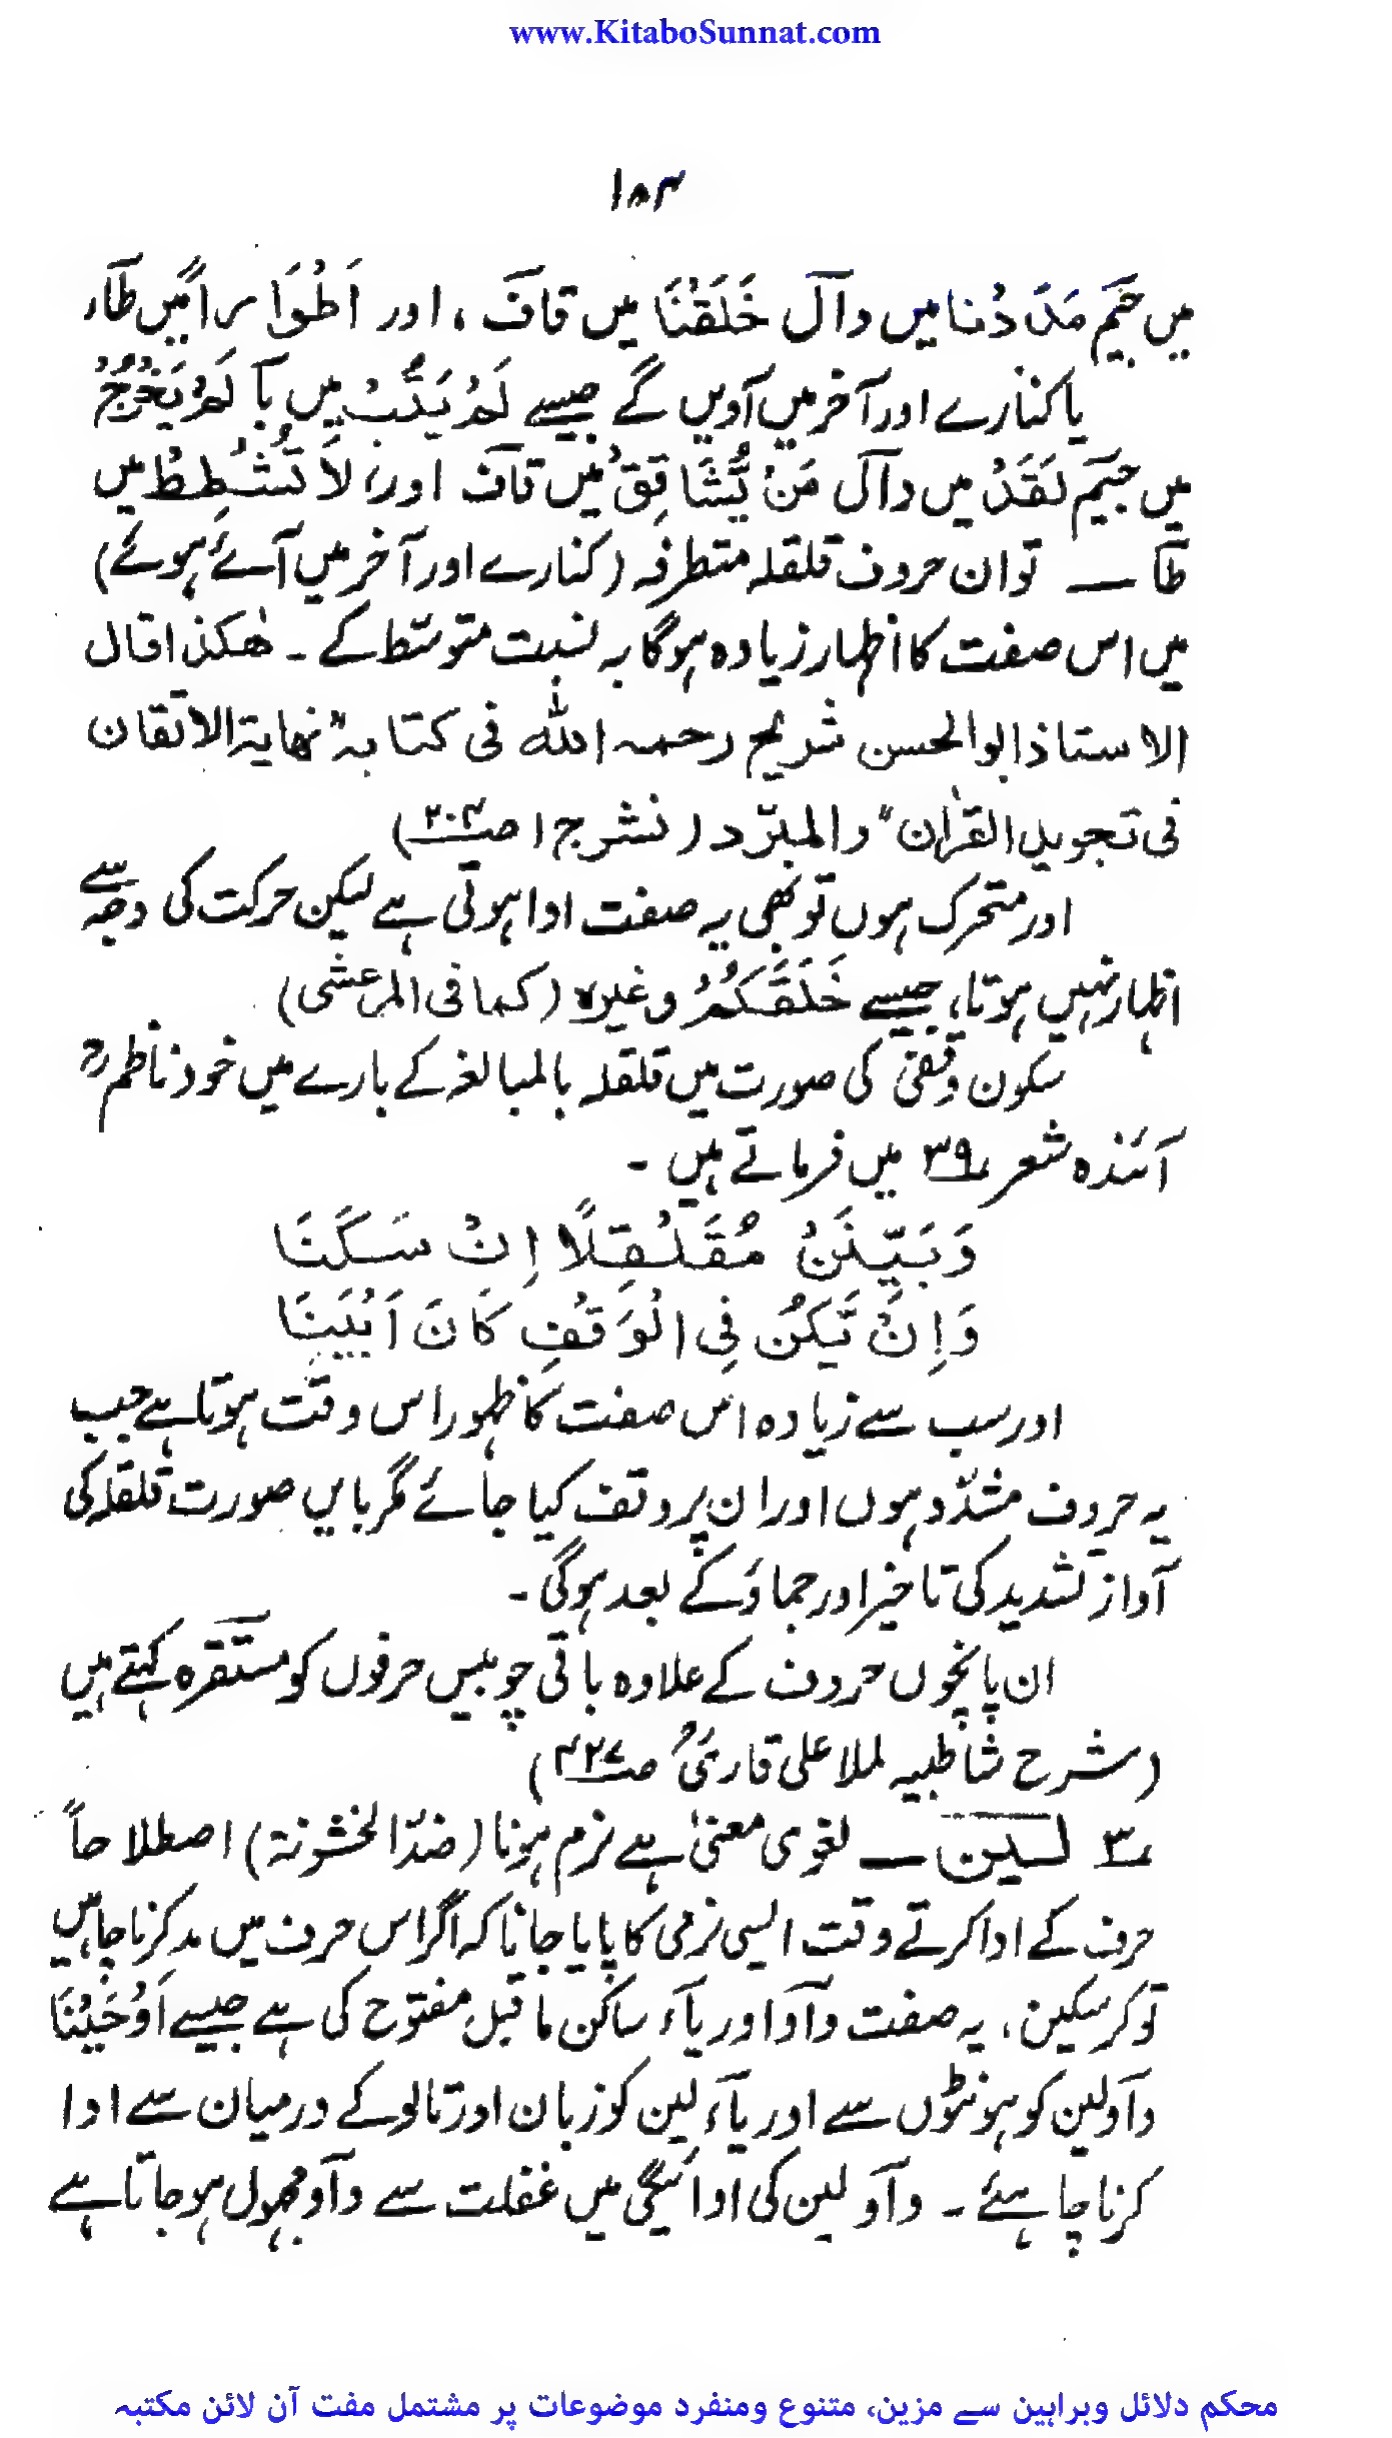 www.KitaboSunnat.com
۱۸۳
میں جیم مَدَدْنا میں دال خَلَقْنَا میں قاف ، اور اَطْوَاراً میں طاء
یا کنارے اور آخر میں آویں گے جیسے لَمْ یَتُبْ میں با لَمْ یَخْرُجْ
میں جیم لَقَدْ میں دال مَنْ یُّشَاقِقْ میں قاف اور لَا تُشْطِطْ میں
طا ـ تو ان حروف قلقلہ متطرفہ (کنارے اور آخر میں آئے ہوئے)
میں اس صفت کا اظہار زیادہ ہوگا بہ نسبت متوسّط کے ۔ ھٰکذا قال
الاستاذ ابوالحسن شریح رحمہ اللہ فی کتابہ "نھایۃ الاتقان
فی تجوید القرٰان" والمبرّد (نشر ج ۱ ص۲۰۳)
اور متحرک ہوں تو بھی یہ صفت ادا ہوتی ہے لیکن حرکت کی وجہ سے
اظہار نہیں ہوتا، جیسے خَلَقَکُمْ وغیرہ (کما فی المرعشی)
سکون وقفی کی صورت میں قلقلہ بالمبالغہ کے بارے میں خود ناظمؒ
آئندہ شعر ۳۹ میں فرماتے ہیں ۔
وَبَیِّنَنْ مُقَلْقِلًا اِنْ سَکَنَا
وَاِنْ یَّکُنْ فِی الْوَقْفِ کَانَ اَبْیَنَا
اور سب سے زیادہ اس صفت کا ظہور اس وقت ہوتا ہے جب
یہ حروف مشدّد ہوں اور ان پر وقف کیا جائے مگر بایں صورت قلقلہ کی
آواز تشدید کی تاخیر اور جماؤ کے بعد ہوگی ۔
ان پانچوں حروف کے علاوہ باقی چوبیس حرفوں کو مستقرہ کہتے ہیں
(شرح شاطبیہ لملا علی قاریؒ ص۴۲۷)
۳ لین ـ لغوی معنیٰ ہے نرم ہونا (ضدّ الخشونۃ) اصطلاحاً
حرف کے ادا کرتے وقت ایسی نرمی کا پایا جانا کہ اگر اس حرف میں مد کرنا چاہیں
تو کر سکیں، یہ صفت واو اور یاء ساکن ما قبل مفتوح کی ہے جیسے اَوْحَیْنَا
واو لین کو ہونٹوں سے اور یاء لین کو زبان اور تالو کے درمیان سے ادا
کرنا چاہئے ۔ واو لین کی ادائیگی میں غفلت سے واو مجہول ہو جاتا ہے
محکم دلائل وبراہین سے مزین، متنوع ومنفرد موضوعات پر مشتمل مفت آن لائن مکتبہ